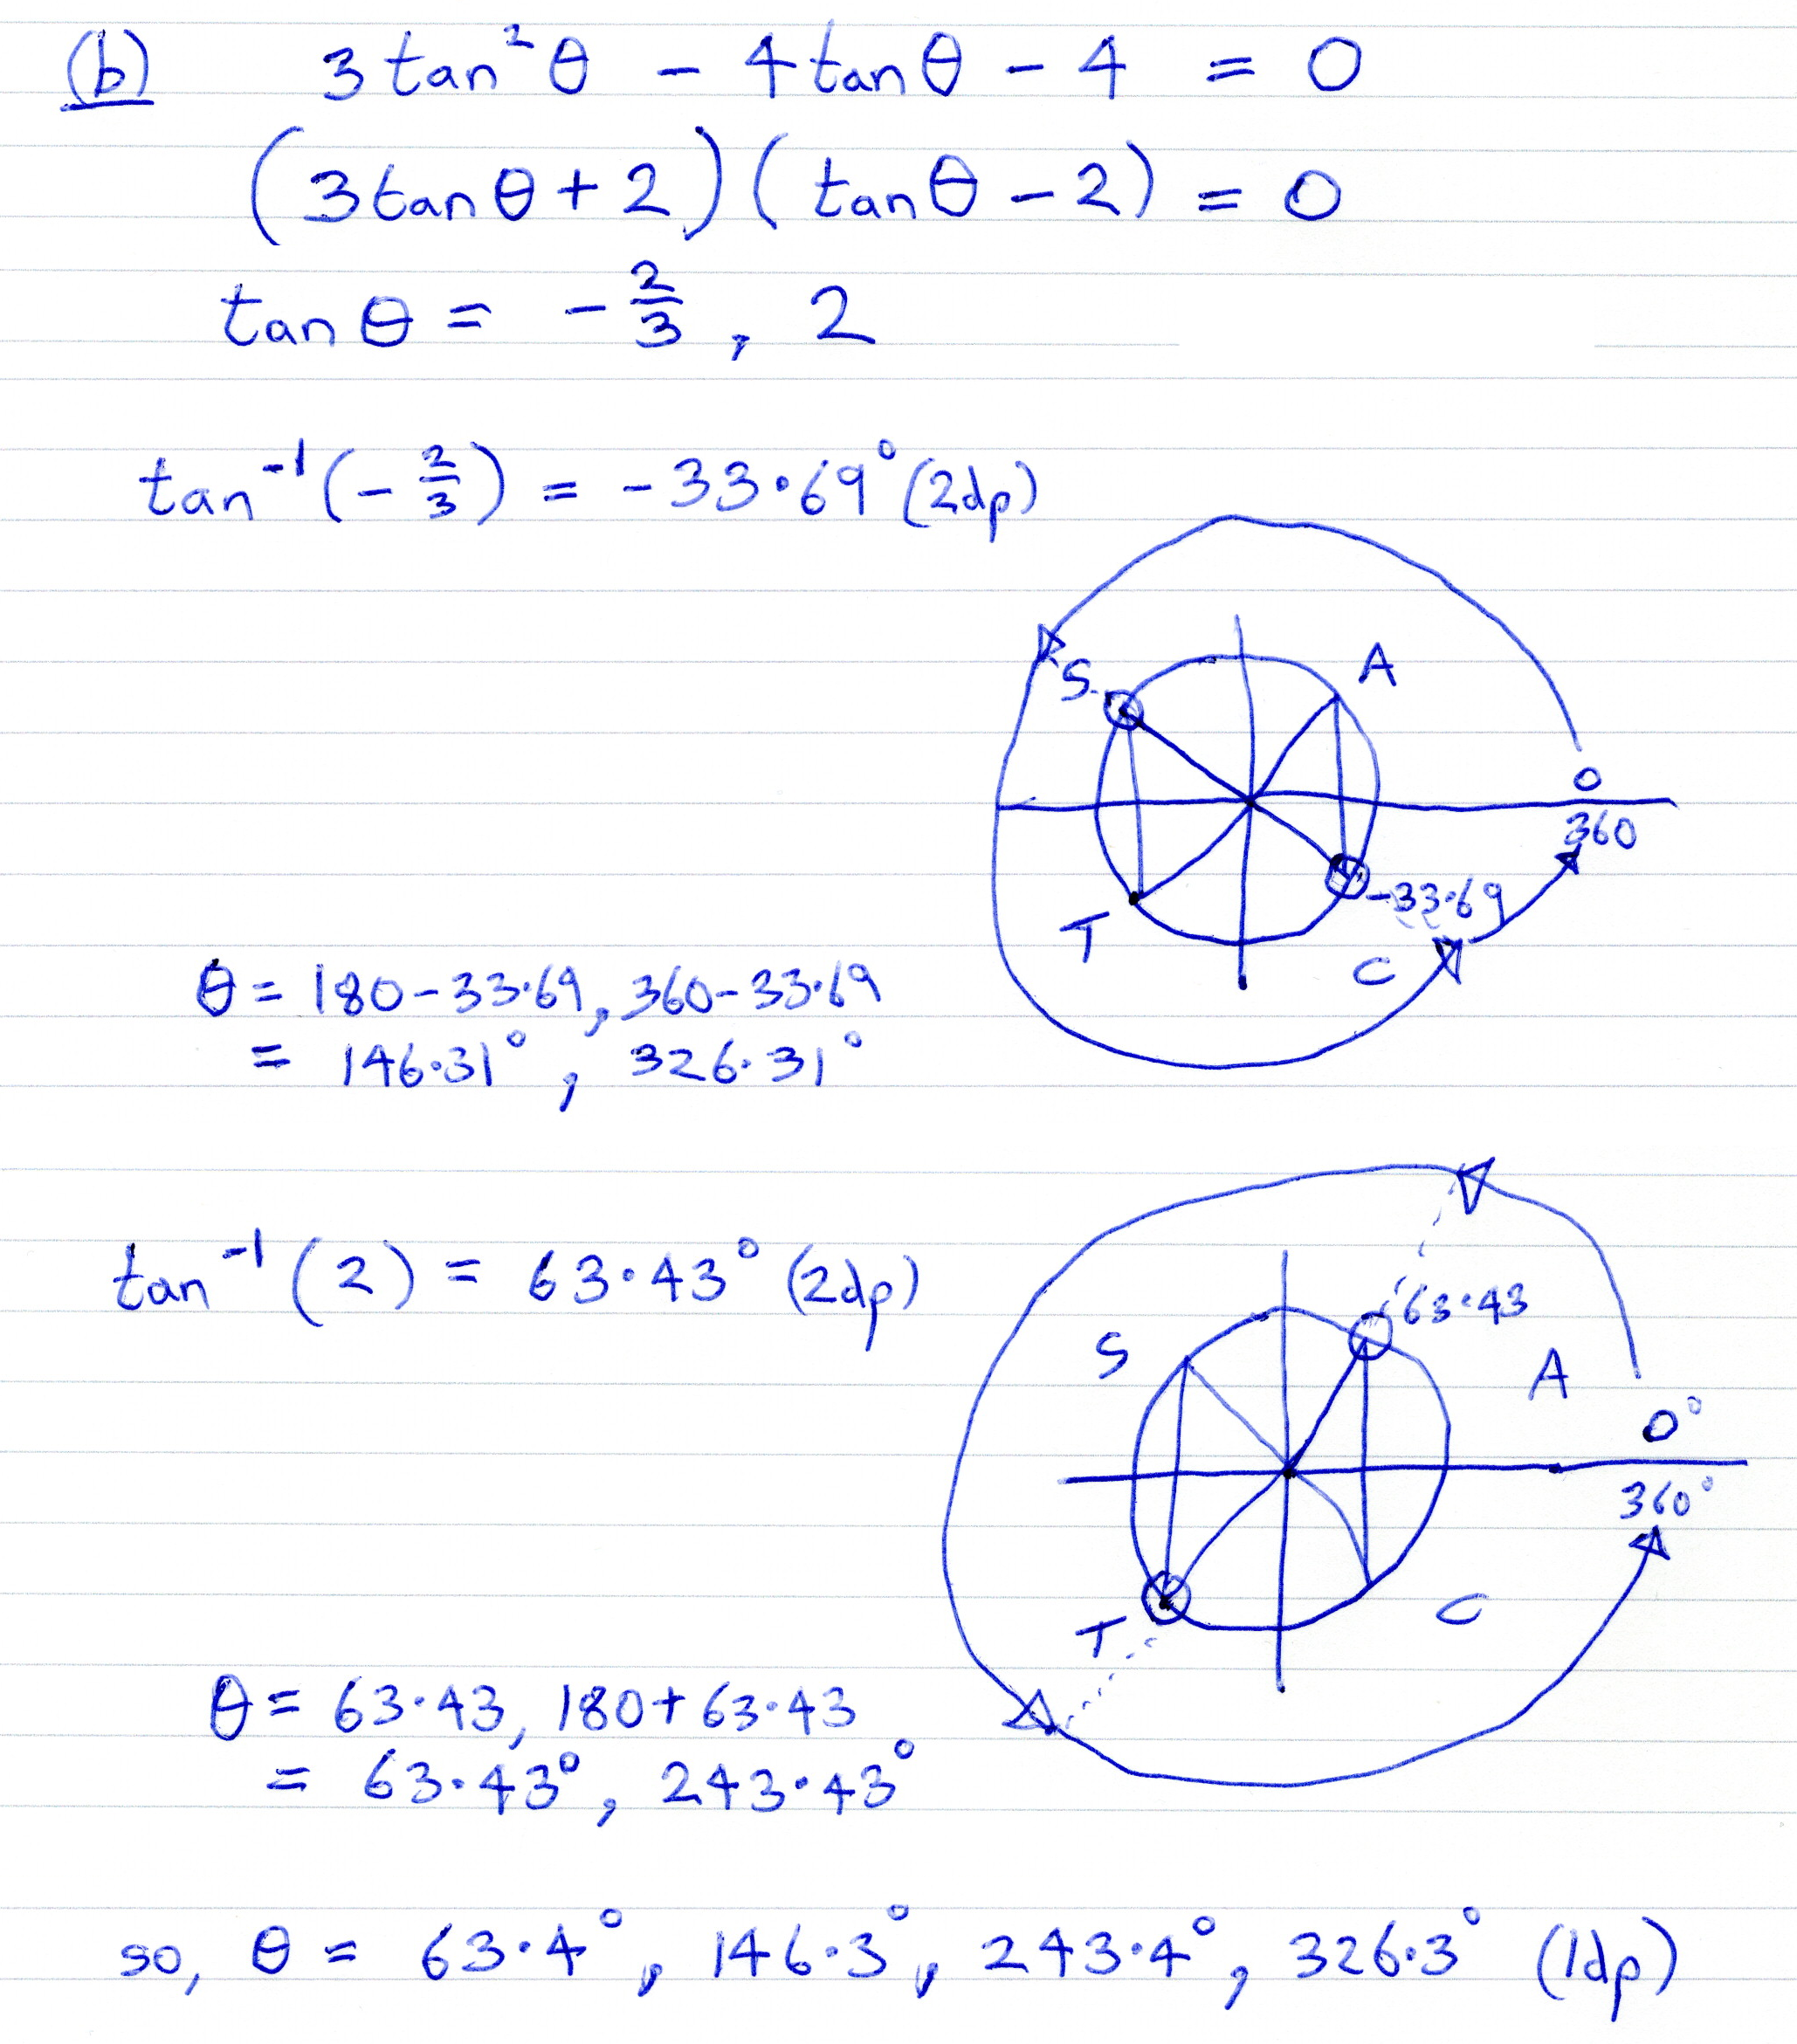 (b) 3 tan²θ - 4 tan θ - 4 = 0
(3 tan θ + 2)(tan θ - 2) = 0
tan θ = -2/3, 2
tan⁻¹(-2/3) = -33.69° (2dp)
S A
0
360
-33.69
T C
θ = 180-33.69, 360-33.69
= 146.31°, 326.31°
tan⁻¹(2) = 63.43° (2dp)
63.43
S A
0°
360°
T C
θ = 63.43, 180+63.43
= 63.43°, 243.43°
so, θ = 63.4°, 146.3°, 243.4°, 326.3° (1dp)